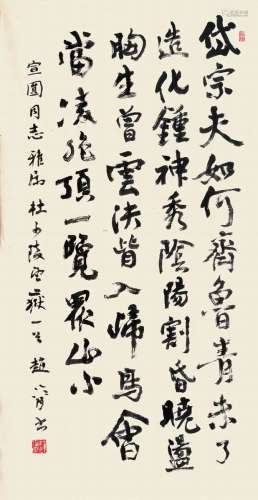 岱宗夫如何齊魯青未了
造化鍾神秀陰陽割昏曉盪
胸生曾雲決眥入歸鳥會
當凌絶頂一覽眾山小
宣同志雅屬 杜少陵望嶽一首 趙冷月書